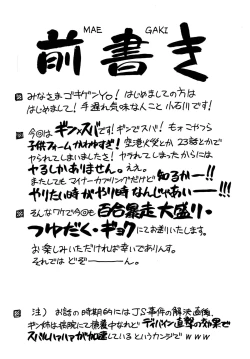 MAE GAKI
前書き
みなさまゴキゲンYo! はじめましての方は
はじめまして! 手遅れ気味なんこと 小石川です!
今回はギン×スバです! ギンでスバ! もォこやつら
子供フォームかわゆすぎ! 空港火災とか 23話とかで
やられてしまいましたさ! ヤラれてしまったからには
ヤるしかありません。ええ。
またしてもマイナーカップリングだけど 知るかー!!
やりたい時がやり時なんじゃあいー!!!
そんなワケで今回も 百合暴走大盛り・
つゆだく・ギョク にてお送りいたします。
お楽しみいただければ幸いでありんす。
それでは どぞーーーん。
注) お話の時期的にはJS事件の解決直後、
ギン姉は病院にて療養中なれど ディバイン直撃の効果で
スバルハァハァが加速しているというカンジで www